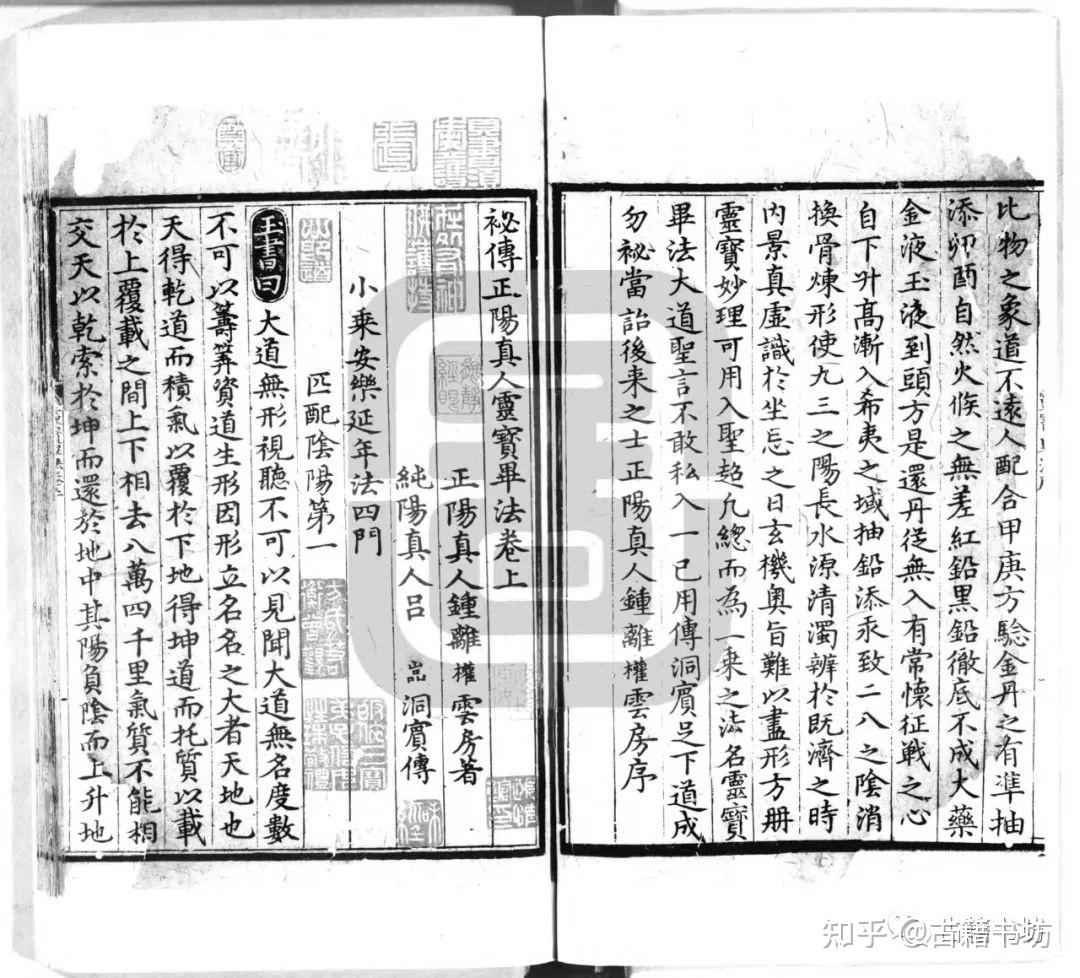 比物之象道不遠人配合甲庚方驗金丹之有準抽
添卯酉自然火候之無差紅鉛黑鉛徹底不成大藥
金液玉液到頭方是還丹從無入有常懷征戰之心
自下升高漸入希夷之域抽鉛添汞致二八之陰消
換骨煉形使九三之陽長水源清濁辨於既濟之時
內景真虛識於坐忘之日玄機奧旨難以盡形方冊
靈寶妙理可用入聖超凡總而為一乗之法名靈寶
畢法大道聖言不敢私入一已用傳洞賓足下道成
勿祕當詒後来之士正陽真人鍾離權雲房序
祕傳正陽真人靈寶畢法卷上
正陽真人鍾離權雲房著
純陽真人呂嵓洞賓傳
小乗安樂延年法四門
匹配陰陽第一
玉書曰大道無形視聽不可以見聞大道無名度數
不可以籌筭資道生形因形立名名之大者天地也
天得乾道而積氣以覆於下地得坤道而托質以載
於上覆載之間上下相去八萬四千里氣質不能相
交天以乾索於坤而還於地中其陽負陰而上升地
知乎 @古籍书坊